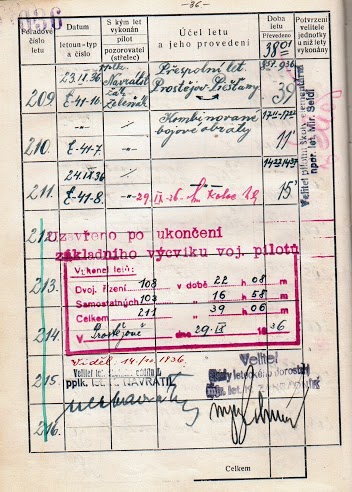 - 36 -
Pořadové číslo letu
Datum
letoun-typ a číslo
S kým let vykonán
pilot
pozorovatel (střelec)
Účel letu
a jeho provedení
Doba letu
Převedeno
38 01
Potvrzení velitele jednotky u níž lety vykonány
209.
23.IX.36
E-41-16.
Navrátil
žák
Zelenák
Přespolní let.
Prostějov-Piešťany
39
210.
E-41-7.
Kombinované
bojové obraty
11'
211.
24.IX.36
E-41-8.
29.IX.36.
15'
Velitel pilotní školy elementární
npor. let. Mir. Seidl
212.
Uzavřeno po ukončení
základního výcviku voj. pilotů
213.
Vykonal letů:
Dvoj. řízení 108 v době 22 h 08 m
Samostatných 103 " 16 h 58 m
Celkem 211 " 39 h 06 m
214.
V Prostějově dne 29.IX 1936
Viděl: 14/10 1936.
215.
pplk. let. NAVRÁTIL
Velitel
školy leteckého dorostu
216.
Celkem